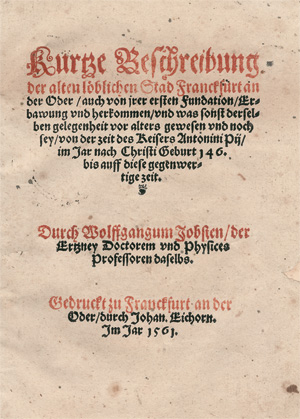 Kurtze Beschreibung
der alten löblichen Stad Franckfurt an
der Oder / auch von jrer ersten Fundation / Er-
bawung vnd herkommen / vnd was sonst dersel-
ben gelegenheit vor alters gewesen vnd noch
sey / von der zeit des Keisers Antonini Pij /
im Jar nach Christi Geburt 146.
biss auff diese gegenwer-
tige zeit.
Durch Wolffgangum Jobsten / der
Ertzney Doctorem vnd Physices
Professoren daselbs.
Gedruckt zu Franckfurt an der
Oder / durch Johan. Eichorn.
Im Jar 1561.